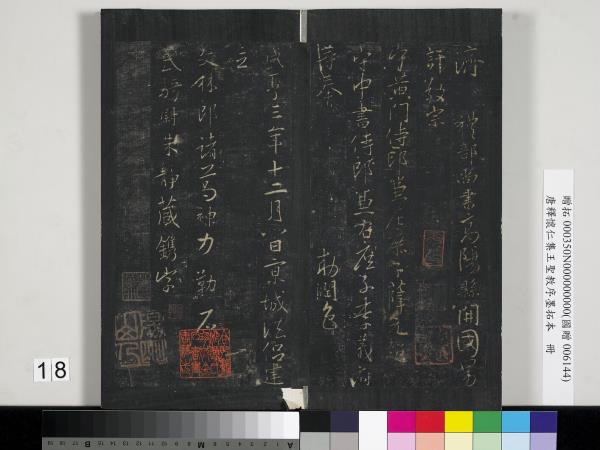 濟 禮部尚書高陽縣開國男
許敬宗
守黃門侍郎兼左庶子薛元超
守中書侍郎兼右庶子李義府
等奉 勅潤色
咸亨三年十二月八日京城法侶建
立
文林郎諸葛神力勒石
武騎尉朱靜藏鐫字
贈拓 000350N000000000(國贈 006144)
唐釋懷仁集王聖教序墨拓本 冊
18